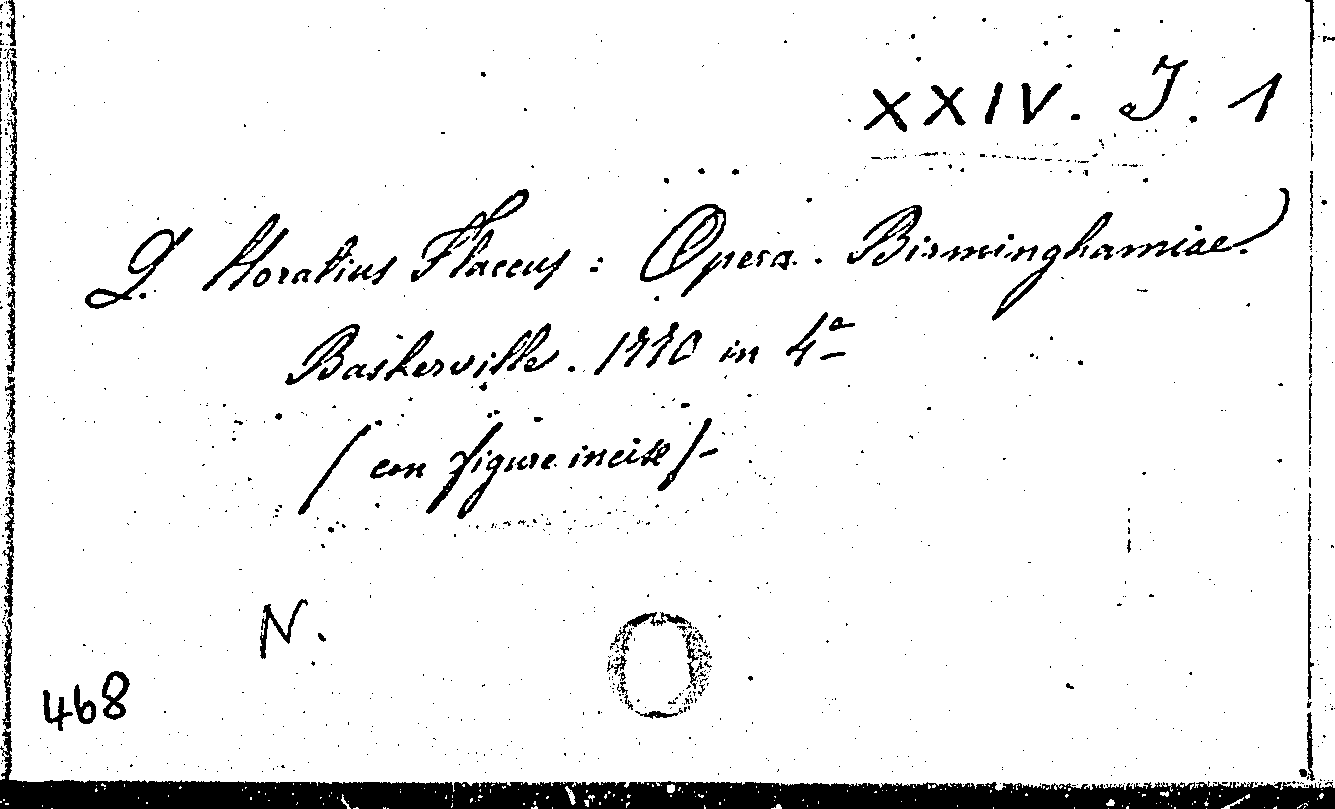 XXIV. J. 1
Q. Horatius Flaccus : Opera. Birminghamiae.
Baskerville. 1770 in 4º
( con figure incise ) -
N.
468